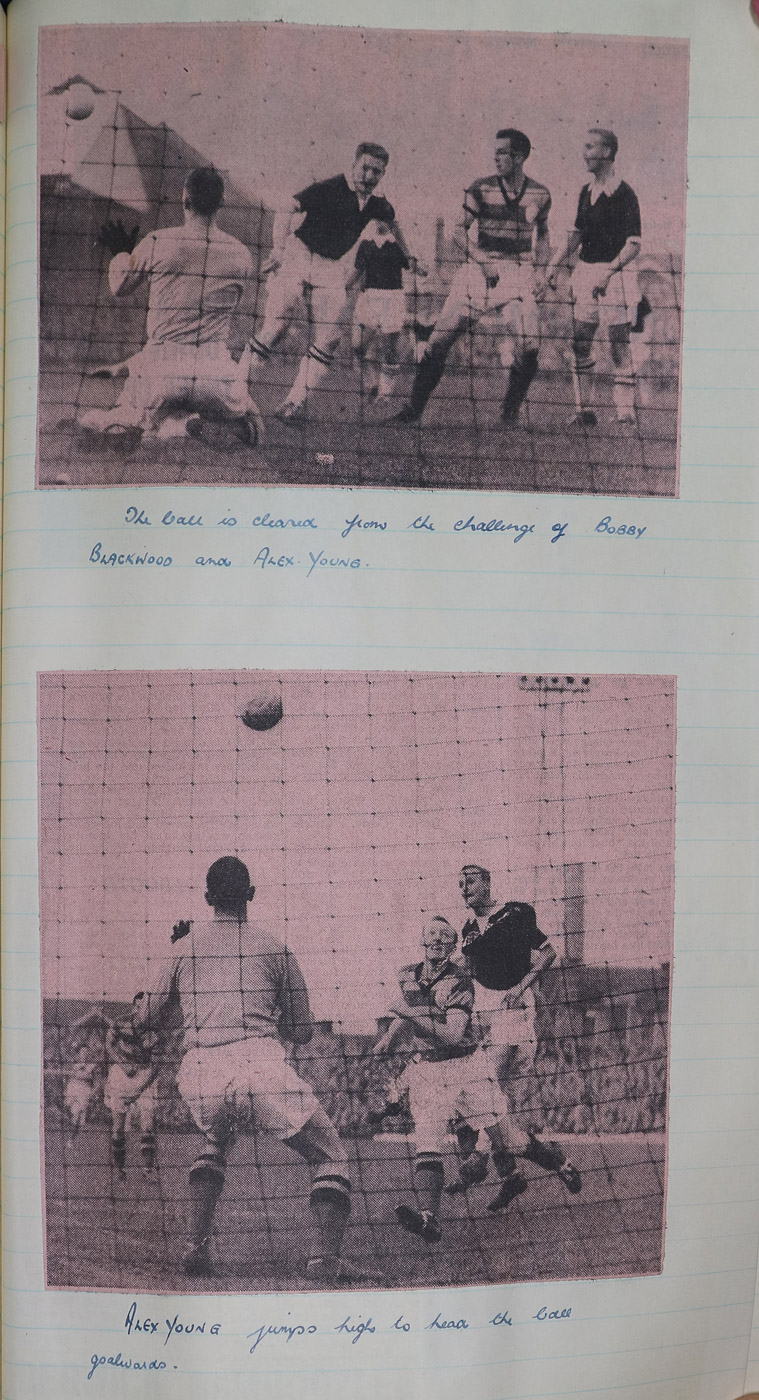 The ball is cleared from the challenge of BOBBY
BLACKWOOD and ALEX YOUNG.
ALEX YOUNG jumps high to head the ball
goalwards.